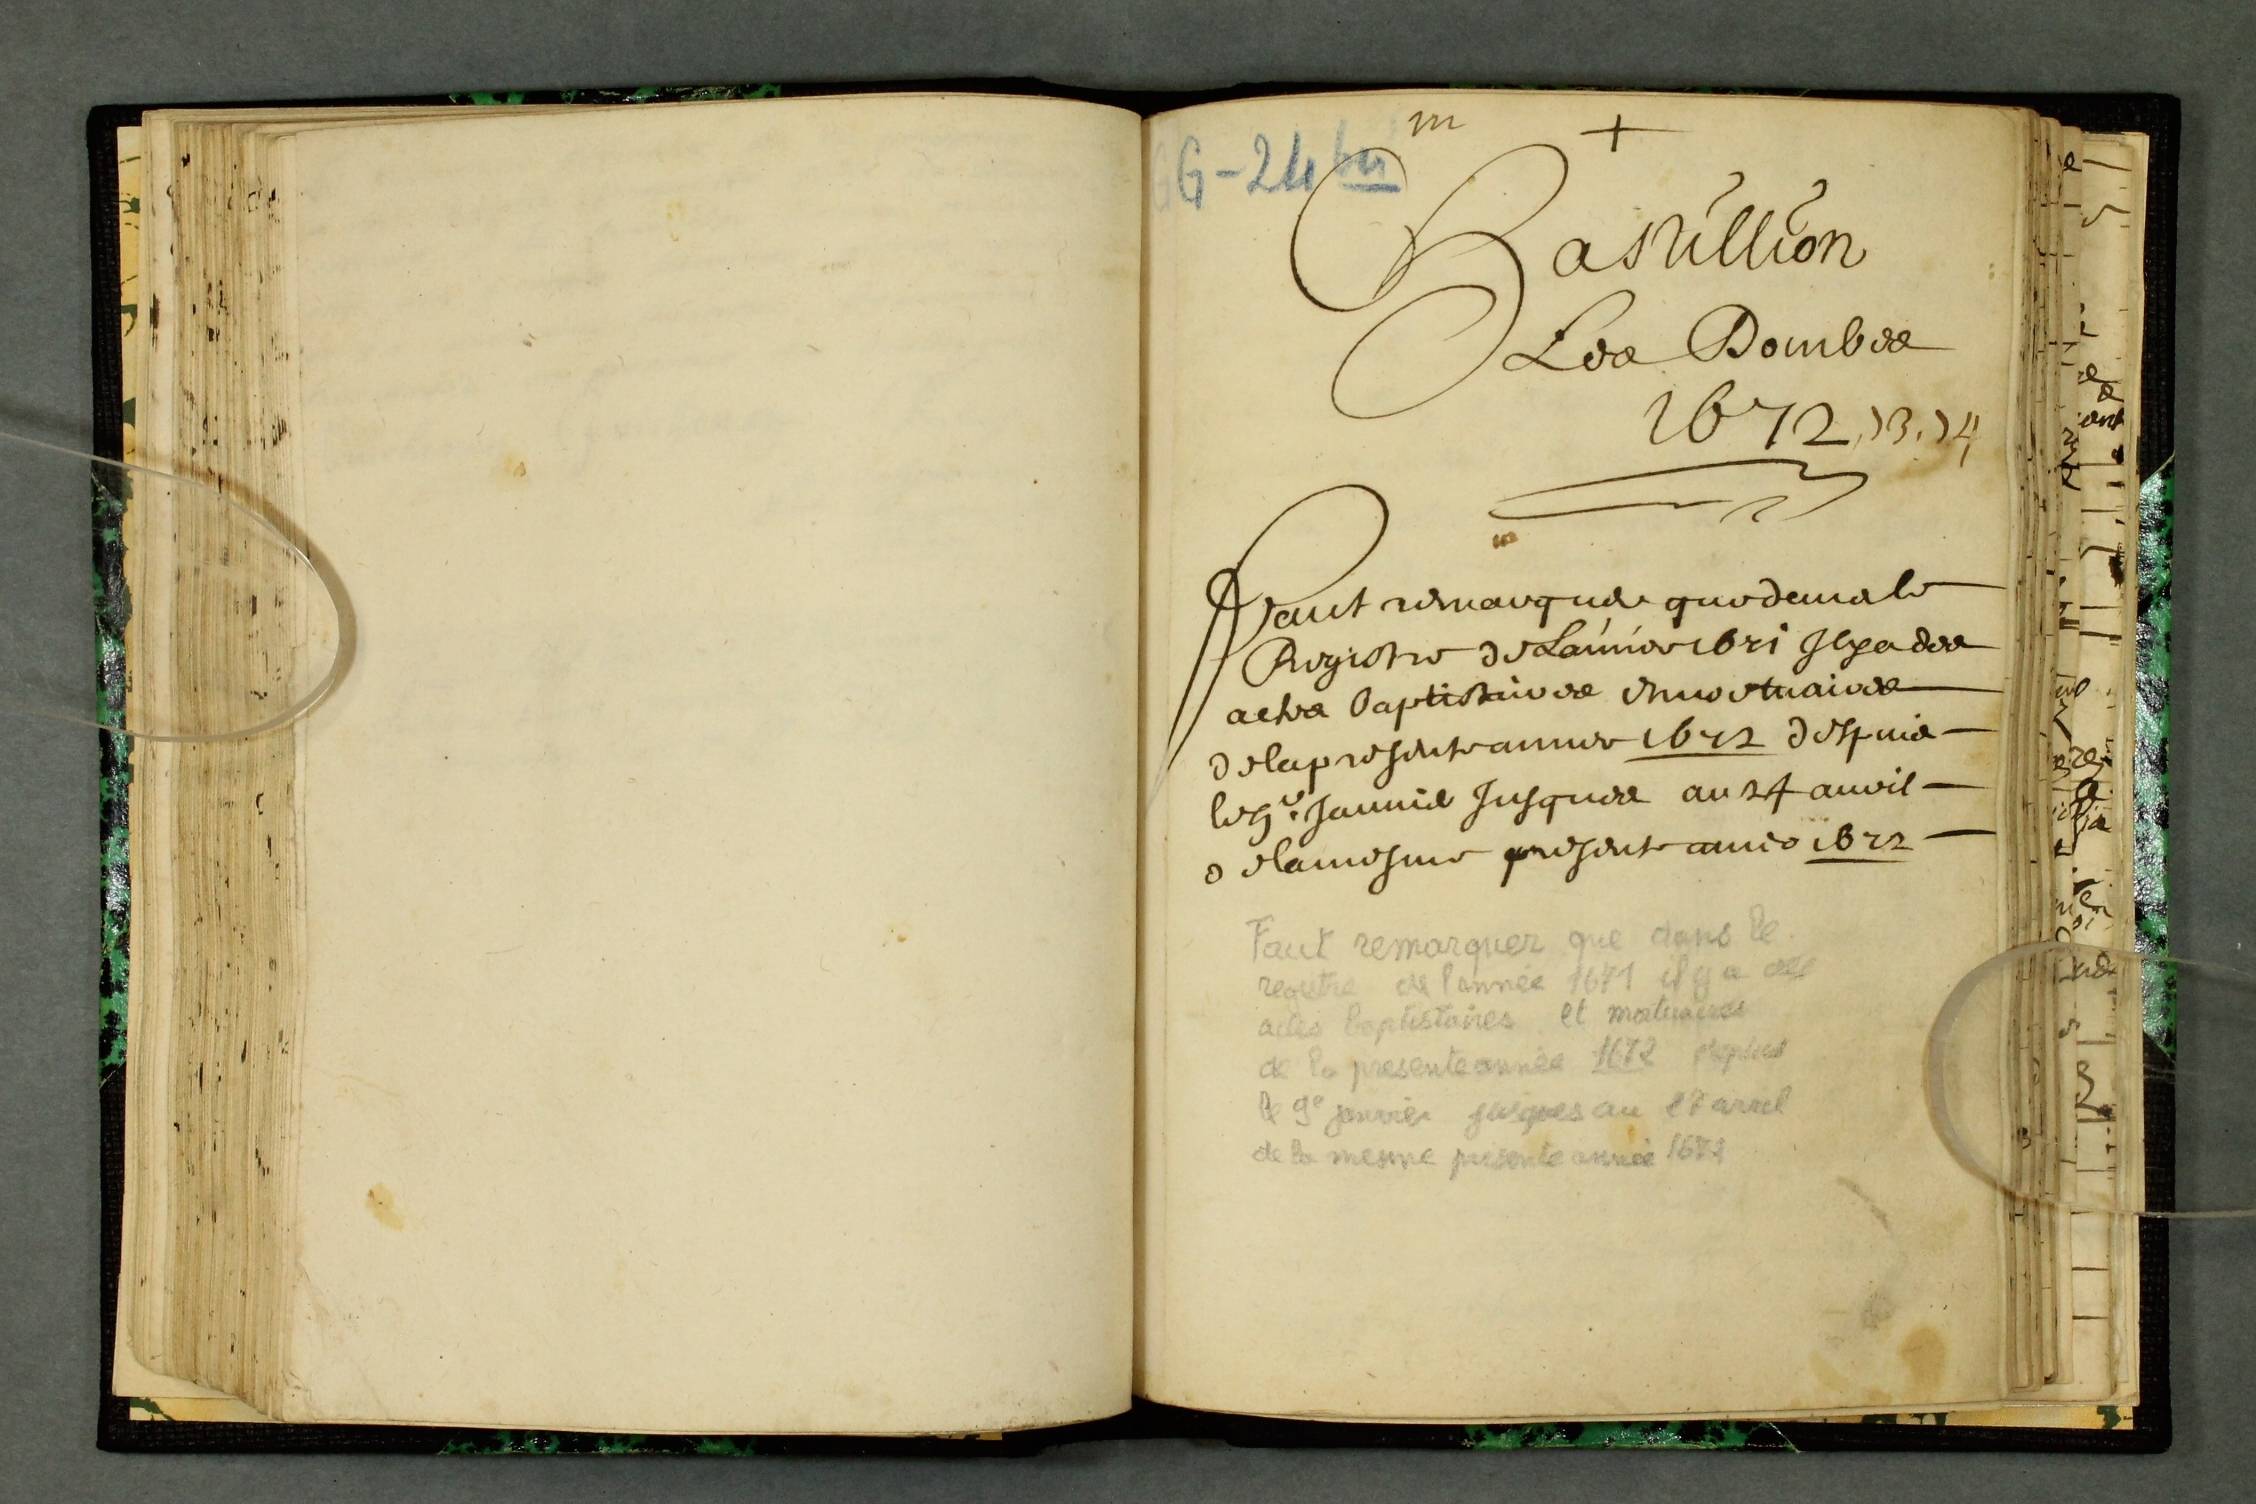 GG-24 bis
m +
Castillion
Les Dombes
1672, 73. 74
Faut remarquer que dans le
Registre de Lannee 1671 Il y a des
actes baptistaires et mortuaires
de la presente annee 1672 despuis
le 9e. Janvie Jusques au 27 avvil
de la mesme presente année 1672
Faut remarquer que dans le
registre de l'année 1671 il y a des
actes baptistaires et mortuaires
de la presente année 1672 depuis
le 9e janvier jusques au 27 avril
de la mesme presente année 1672